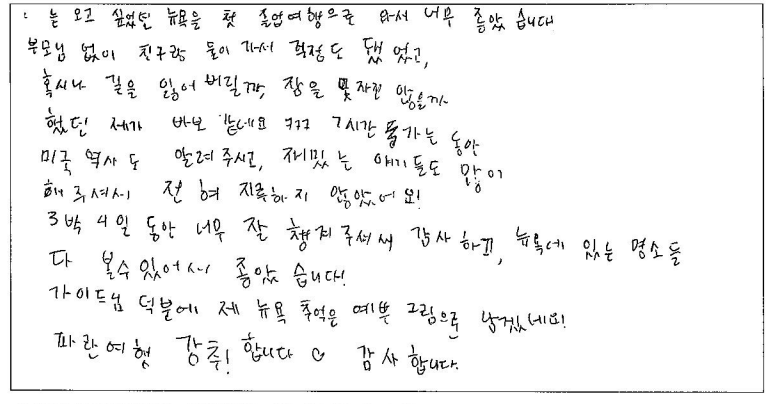 : 는 오고 싶었던 뉴욕을 첫 졸업여행으로 와서 너무 좋았습니다
부모님 없이 친구랑 둘이 가서 걱정도 됐었고,
혹시나 길을 잃어버릴까, 잠을 못자진 않을까
했던 제가 바보 같네요 ㅋㅋㅋ 7시간 동안
미국 역사도 알려주시고, 재밌는 얘기들도 많이
해주셔서 전혀 지루하지 않았어요!
3박 4일 동안 너무 잘 챙겨주셔서 감사하고, 뉴욕에 있는 명소들
다 볼수있어서 좋았습니다!
가이드님 덕분에 제 뉴욕 추억은 예쁜 그림으로 남겠네요!
파란여행 강추! 합니다 감사합니다.